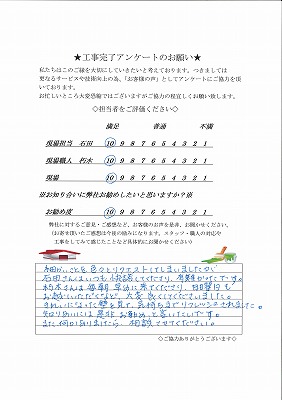 ★工事完了アンケートのお願い★
私たちはこのご縁を大切にしていきたいと考えております。つきましては
更なるサービスや技術向上の為、「お客様の声」としてアンケートにご協力を頂
いております。
お忙しいところ大変恐縮ではございますがご協力の程宜しくお願い致します。
◇担当者をご評価ください◇
満足 普通 不満
現場担当 石田 10 9 8 7 6 5 4 3 2 1
現場職人 朽木 10 9 8 7 6 5 4 3 2 1
現場 10 9 8 7 6 5 4 3 2 1
※お知り合いに弊社お勧めしたいと思いますか?※
お勧め度 10 9 8 7 6 5 4 3 2 1
弊社に対するご意見・ご感想など、お客様のお声を是非、お聞かせください。
(お答え頂いたご感想は今後の励みになります。スタッフ・職人の対応や
工事をしてみて感じたことなど具体的にお聞かせください)
細かいことを色々とリクエストしてしまいましたが
石田さんはいつも快諾してくださり、有難かったです。
朽木さんは毎朝早めに来てくださり、日曜日も
お越しいただくなど、大変良くしてくださいました。
きれいになった壁を見て、気持ちまでリフレッシュされました。
知り合いには是非お勧めしたいと言いたいです。
また何かありましたら、相談させてください。
◇ご協力ありがとうございます◇